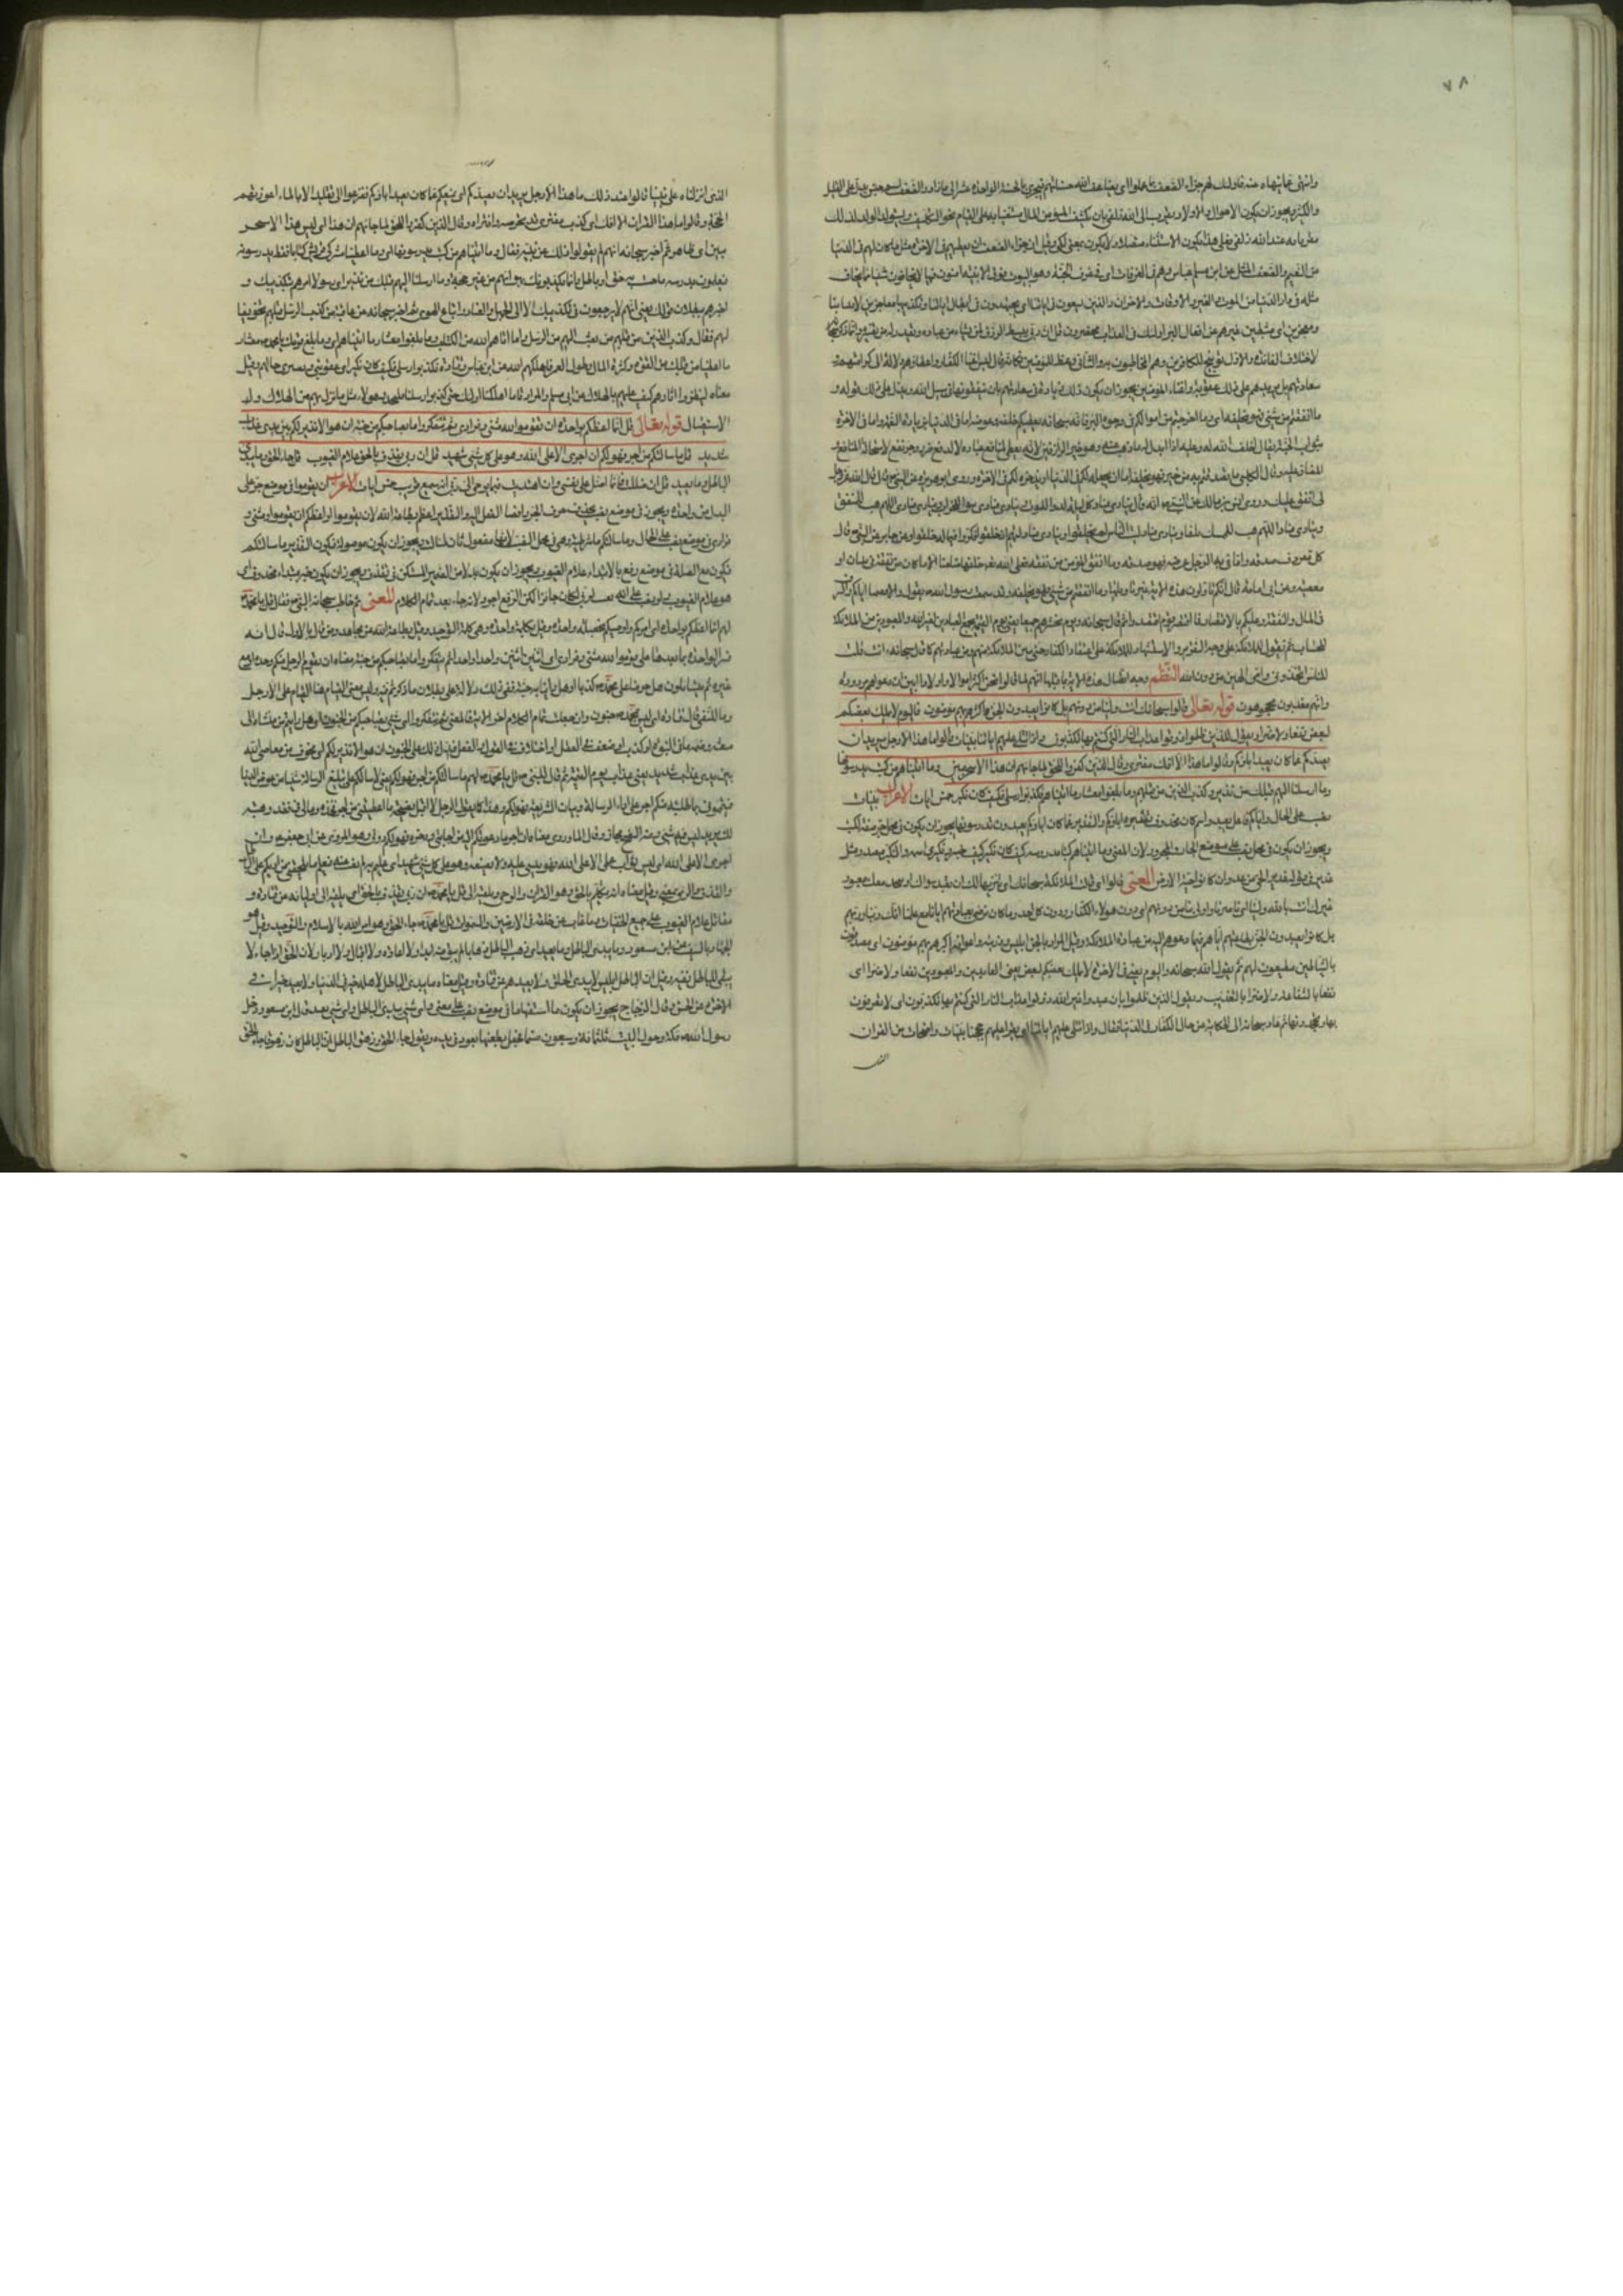 ٧٨
وانتهى غايتها عنده فاولئك لهم جزاء الضعف بما عملوا اى يضاعف الله حسناتهم فيجزى بالحسنة الواحدة عشرا الى ما زاد والضعف اسم جنس يدل على القليل
والكثير ويجوز ان يكون الاموال والاولاد يقرب الى الله تعالى بان يكتسب المؤمن المال مستعينا به على القيام بحق التكليف ويستولد الولد لذلك
مقربا به عند الله زلفى فعلى هذا يكون الاستثناء متصلا ولا يكون بمعنى لكن وقيل ان جزاء الضعف ان يعطيهم فى الآخرة مثل ما كان لهم فى الدنيا
من النعيم والضعف المثل عن ابى مسلم وهم فى الغرفات اى فى غرف الجنة وهو البيوت فوق الابنية آمنون فيها لا يخافون شيئا مما يخاف
مثله فى دار الدنيا من الموت والغير والآفات والاحزان والذين يسعون فى آياتنا اى يجتهدون فى ابطال آياتنا وتكذيبها معاجزين لانبيائنا
ومعجزين اى مثبطين غيرهم عن افعال البر اولئك فى العذاب محضرون قل ان ربى يبسط الرزق لمن يشاء من عباده ويقدر له من تفسيره وانما كرره
لاختلاف الفائدة والاول توبيخ للكافرين وهم المخاطبون به والثانى وعظ للمؤمنين فكانه قال ليس اغناء الكفار واعطاؤهم لدلالة الى كرامتهم
سعادتهم بل يزيدهم على ذلك عقوبة واقناء المؤمنين يجوز ان يكون ذلك زيادة فى سعادتهم بان ينفقوه فى سبيل الله ويدل على ذلك قوله و
ما انفقتم من شئ فهو يخلفه اى وما اخرجتم من اموالكم فى وجوه البر فانه سبحانه يعطيكم خلفه وعوضه اما فى الدنيا بزيادة النعمة واما فى الآخرة
بثواب الجنة يقال اخلف الله له وعليه اذا ابدل له ما ذهب عنه وهو خير الرازقين لانه يعطى لمنافع عباده لا لدفع ضرر او جر نفع لاستحالة المنافع
والمضار عليه وقال الكلبى ما تصدقتم به من خير فهو يخلفه اما ان يعجله لكم فى الدنيا او يدخره لكم فى الآخرة وروى ابو هريرة عن النبى ص قال قال الله عز وجل
لى انفق انفق عليك وروى انس بن مالك عن النبى ص انه قال ينادى مناد كل ليلة لدوا للموت وينادى مناد ابنوا للخراب وينادى مناد اللهم هب للمنفق
وينادى مناد اللهم هب للممسك تلفا وينادى مناد ليت الناس لم يخلقوا وينادى مناد ليتهم اذ خلقوا فكروا فيما له خلقوا وعن جابر عن النبى ص قال
كل معروف صدقة وما وقى به الرجل عرضه فهو صدقة وما انفق المؤمن من نفقة فعلى الله خلفها ضامنا الا ما كان من نفقة فى بنيان او
معصية وعن ابى امامة قال انكم تأولون هذه الآية فى غير تأويلها وما انفقتم من شئ فهو يخلفه وقد سمعت رسول الله ص يقول والا فصمتا اياكم والسرف
فى المال والنفقة وعليكم بالاقتصاد فما افتقر قوم اقتصدوا ثم قال سبحانه ويوم نحشرهم جميعا يعنى يوم القيمة يجمع العابدين لغير الله والمعبودين من الملائكة
للحساب ثم نقول للملائكة على وجه التقرير والاستشهاد للملائكة على اعتقادات الكفار حتى يتبرأ الملائكة منهم ومن عبادتهم كما قال سبحانه ءانت قلت
للناس اتخذونى وامى الهين من دون الله النظم وجه اتصال هذه الآية بما قبلها انهم لما قالوا نحن اكثر اموالا واولادا
وانهم معذبون محجوجون قوله تعالى قالوا سبحانك انت ولينا من دونهم بل كانوا يعبدون الجن اكثرهم بهم مؤمنون فاليوم لا يملك بعضكم
لبعض نفعا ولا ضرا ونقول للذين ظلموا ذوقوا عذاب النار التى كنتم بها تكذبون واذا تتلى عليهم آياتنا بينات قالوا ما هذا الا رجل يريد ان
يصدكم عما كان يعبد آباؤكم وقالوا ما هذا الا افك مفترى وقال الذين كفروا للحق لما جاءهم ان هذا الا سحر مبين وما آتيناهم من كتب يدرسونها
وما ارسلنا اليهم قبلك من نذير وكذب الذين من قبلهم وما بلغوا معشار ما آتيناهم فكذبوا رسلى فكيف كان نكير خمس آيات الاعراب بينات
نصب على الحال وآباؤكم فاعل يعبد واسم كان محذوف تقديره آباؤكم والتقدير عما كان آباؤكم يعبدون يدرسونها يجوز ان يكون فى محل جر صفة لكتب
ويجوز ان يكون فى محل نصب على موضع الجار والمجرور لان المعنى وما آتيناهم كتبا مدروسة كيف كان نكير كيف خبر كان ونكيرى اسمه والنكير مصدر مثل
المعنى قالوا اى قالت الملائكة سبحانك اى تنزيها لك ان نعبد سواك
غيرك انت يا الله ولينا اى ناصرنا واولى بنا من دونهم اى دون هؤلاء الكفار ودون كل احد وما كنا نرضى بعبادتهم ايانا مع علمنا انك ربنا وربهم
بل كانوا يعبدون الجن بطاعتهم اياهم فيما دعوهم اليه من عبادة الملائكة وقيل المراد بالجن ابليس وذريته واعوانه اكثرهم بهم مؤمنون اى مصدقون
بالشياطين مطيعون لهم ثم يقول الله سبحانه واليوم يعنى فى الآخرة لا يملك بعضكم لبعض يعنى العابدين والمعبودين نفعا ولا ضرا اى
نفعا بالشفاعة ولا ضرا بالتعذيب ونقول الذين ظلموا بان عبدوا غير الله ذوقوا عذاب النار التى كنتم بها تكذبون اى لا تعترفون
بها وتجحدونها ثم عاد سبحانه الى الحكاية عن حال الكفار فى الدنيا فقال واذا تتلى عليهم آياتنا اى يقرا عليهم حججنا بينات واضحات من القران
الذى انزلناه على نبينا قالوا عند ذلك ما هذا الا رجل يريد ان يصدكم اى يمنعكم عما كان يعبد آباؤكم فزعوا الى تقليد الآباء لما اعوزتهم
الحجة وقالوا ما هذا القران الا افك اى كذب مفترى قد تخرصه وافتراه وقال الذين كفروا للحق لما جاءهم ان هذا اى ليس هذا الا سحر
مبين اى ظاهر ثم اخبر سبحانه انهم لم يقولوا ذلك عن بينة فقال وما آتيناهم من كتب يدرسونها اى وما اعطينا مشركى قريش كتابا قط يدرسونه
فيعلمون بدرسه ان ما جئت به حق او باطل وانما يكذبونك بهواهم من غير حجة وما ارسلنا اليهم قبلك من نذير اى رسول امرهم بتكذيبك و
اخبرهم ببطلان قولك يعنى انهم لا يرجعون فى تكذيبك الا الى الجهل والعناد واتباع الهوى ثم اخبر سبحانه عن عاقبة من كذب الرسل قبلهم تخويفا
لهم فقال وكذب الذين من قبلهم من بعث اليهم من الرسل وما آتاهم الله من الكتب وما بلغوا معشار ما آتيناهم اى وما بلغ قومك يا محمد معشار
ما اعطينا من قبلهم من القوة وكثرة المال وطول العمر فاهلكهم الله عن ابن عباس وقتادة فكذبوا رسلى فكيف كان نكير اى عقوبتى وتغييرى حالهم وقيل
معناه انظر فى آثارهم كيف عليهم بالهلاك عن ابى مسلم والمراد انا كما اهلكنا اولئك حين كذبوا رسلنا فليحذر هؤلاء مثل ما نزل بهم من الهلاك و
الاستيصال قوله تعالى قل انما اعظكم بواحدة ان تقوموا لله مثنى وفرادى ثم تتفكروا ما بصاحبكم من جنة ان هو الا نذير لكم بين يدى عذاب
شديد قل ما سالتكم من اجر فهو لكم ان اجرى الا على الله وهو على كل شئ شهيد قل ان ربى يقذف بالحق علام الغيوب قل جاء الحق وما يبدئ
الباطل وما يعيد قل ان ضللت فانما اضل على نفسى وان اهتديت فبما يوحى الى ربى انه سميع قريب خمس آيات الاعراب ان يقوموا فى موضع جر على
البدل من واحدة ويجوز فى موضع نصب بحذف حرف الجر وافضاء الفعل اليه والتقدير اعظكم بطاعة الله لان تقوموا او اعظكم ان تقوموا ومثنى و
فرادى فى موضع نصب على الحال وما سالتكم ما شرطية وهى فى محل النصب لانها مفعول ثان لسالت ويجوز ان يكون موصولة فيكون التقدير ما سالتكم
فيكون مع الصلة فى موضع رفع بالابتداء علام الغيوب يجوز ان يكون بدلا من الضمير المستكن فى يقذف ويجوز ان يكون خبر مبتداء محذوف اى
هو علام الغيوب ولو نصب على انه نعت لربى لكان جائزا لكن الرفع اجود لانه جاء بعد تمام الكلام المعنى ثم خاطب سبحانه النبى ص فقال قل يا محمد
لهم انما اعظكم بواحدة اى آمركم واوصيكم بخصلة واحدة وقيل بكلمة واحدة وهى كلمة التوحيد وقيل بطاعة الله عن مجاهد ومن قال بالاول قال انه
فسر الواحدة بما بعدها فقال ان تقوموا لله مثنى وفرادى اى اثنين اثنين وواحدا واحدا ثم تتفكروا ما بصاحبكم من جنة معناه ان يقوم الرجل منكم وحده او مع
غيره ثم يتساءلون هل جربنا على محمد كذبا او هل راينا به جنة ففى ذلك دلالة على بطلان ما ذكرتم فيه وليس معنى القيام هنا القيام على الارجل
وما للنفى قال قتادة اى ليس بمحمد جنون وان جعلت تمام الكلام آخر الآية فالمعنى ثم تتفكروا اى شئ بصاحبكم من الجنون اى هل رايتم من منشاه الى
مبعثه وصمة تنافى النبوة من كذب او ضعف فى العقل او اختلاف فى القول والفعل فيدل ذلك على الجنون ان هو الا نذير لكم اى مخوف من معاصى الله
بين يدى عذاب شديد يعنى عذاب يوم القيمة ثم قال للنبى ص قل يا محمد لهم ما سالتكم من اجر فهو لكم يعنى لا اسالكم على تبليغ الرسالة شيئا من عرض الدنيا
فتتهمونى فما طلبت منكم اجر على اداء الرسالة وبيان الشريعة فهو لكم وهذا كما يقول الرجل لمن لا يقبل نصيحته ما اعطيتنى من اجر فخذه وما لى فى هذا فقد وهبته
لك يريد ليس لى فيه شئ وقال الماوردى معناه ان اجر ما دعوتكم اليه من اجابتى وذخره فهو لكم دونى وهو المروى عن ابى جعفر ع ان
اجرى الا على الله اى ليس ثواب عملى الا على الله فهو يثيبنى عليه ولا يضيعه وهو على كل شئ شهيد اى عليم به لم يغب عنه فيعلم ما يلحقنى من اذيتكم قل ان
ربى يقذف بالحق وقيل معناه انه يتكلم بالحق وهو القران والوحى يلقيه الى قل يا محمد ان ربى يقذف بالحق اى يلقيه الى انبيائه عن قتادة و
مقاتل علام الغيوب علم جميع الخفيات وما غاب عن خلقه فى الارضين والسموات قل يا محمد جاء الحق وهو امر الله بالاسلام والتوحيد وقيل هو
الجهاد بالسيف عن ابن مسعود وما يبدئ الباطل وما يعيد اى ذهب الباطل ذهابا لم يبق منه ابداء ولا اعادة ولا اقبال ولا ادبار لان الحق اذا جاء لا
يبقى للباطل بقية وقيل ان الباطل ابليس لا يبدئ الخلق ولا يعيدهم عن قتادة وقيل معناه ما يبدئ الباطل لاهله خيرا فى الدنيا ولا يعيد خيرا فى
الآخرة عن الحسن وقال الزجاج يجوز ان يكون ما استفهاما فى موضع نصب على معنى واى شئ يبدئ الباطل واى شئ يعيد قال ابن مسعود دخل
رسول الله ص مكة وحول البيت ثلثمائة وستون صنما فجعل يطعنها بعود فى يده ويقول جاء الحق وزهق الباطل ان الباطل كان زهوقا جاء الحق